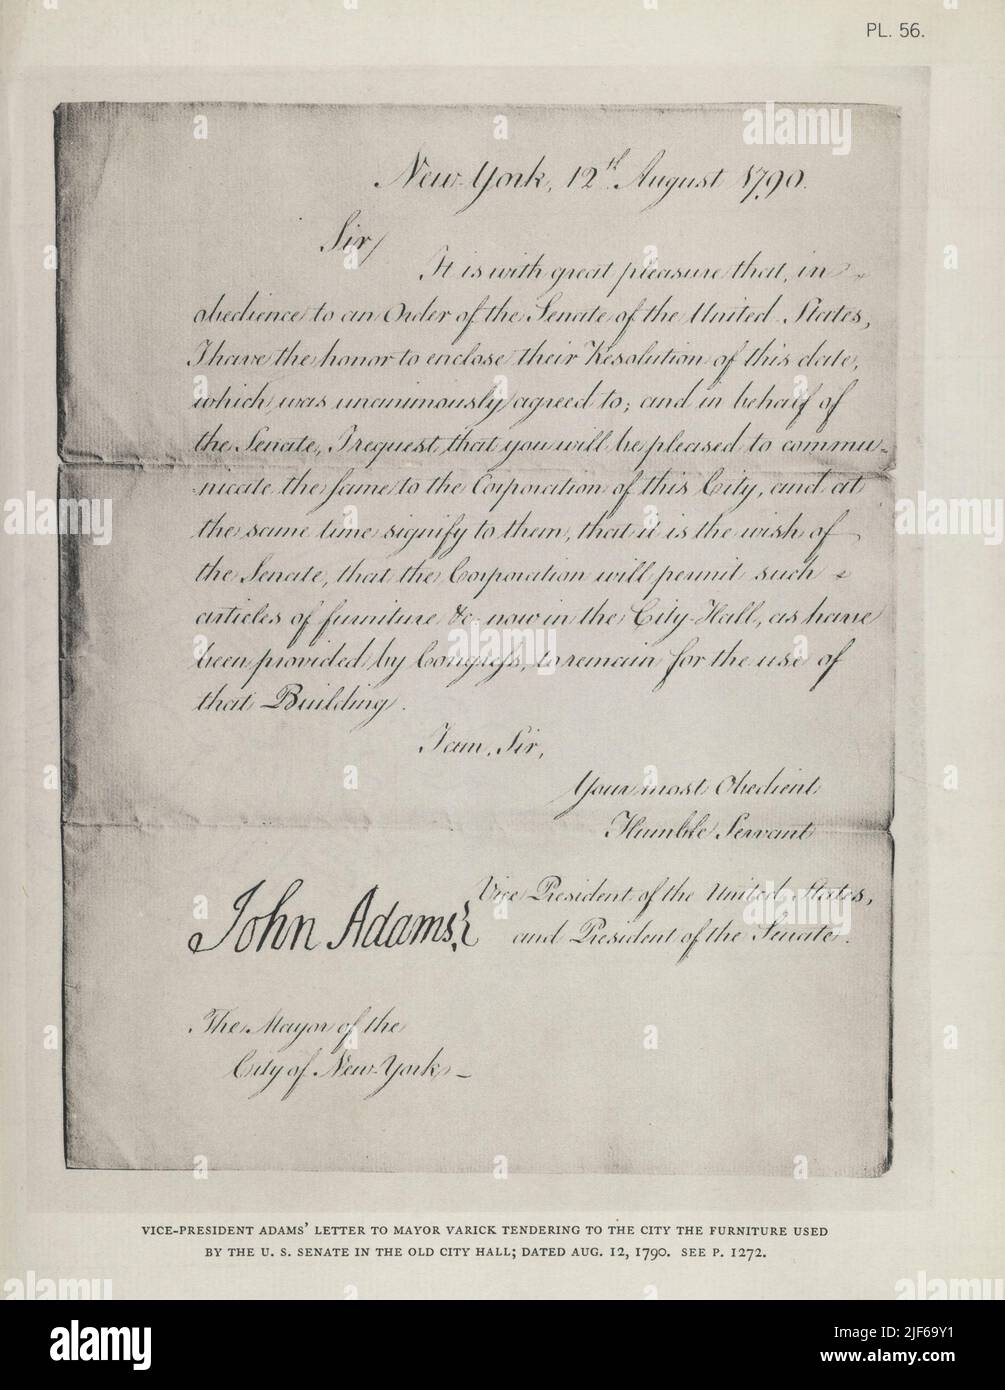 PL. 56.
New-York, 12th August 1790.
Sir,
It is with great pleasure that, in
obedience to an Order of the Senate of the United States,
I have the honor to enclose their Resolution of this date,
which was unanimously agreed to; and in behalf of
the Senate, I request that you will be pleased to commu-
nicate the same to the Corporation of this City, and at
the same time signify to them, that it is the wish of
the Senate, that the Corporation will permit such
articles of furniture &c. now in the City-Hall, as have
been provided by Congress, to remain for the use of
that Building.
I am, Sir,
Your most Obedient
Humble Servant
John Adams,
Vice President of the United States,
and President of the Senate.
The Mayor of the
City of New-York
VICE-PRESIDENT ADAMS' LETTER TO MAYOR VARICK TENDERING TO THE CITY THE FURNITURE USED
BY THE U. S. SENATE IN THE OLD CITY HALL; DATED AUG. 12, 1790. SEE P. 1272.
alamy
alamy
alamy
alamy
alamy
Image ID: 2JF69Y1
www.alamy.com